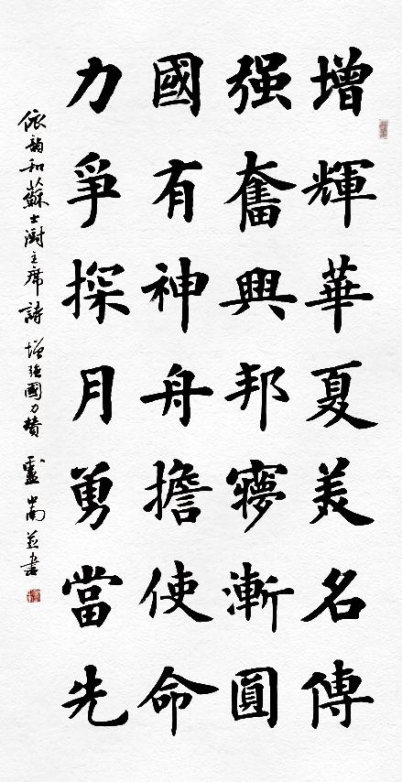 增輝華夏美名傳
强奮興邦夢漸圓
國有神舟擔使命
力爭探月勇當先
依韵和蘇士澍主席詩 增强國力贊 盧中南並書